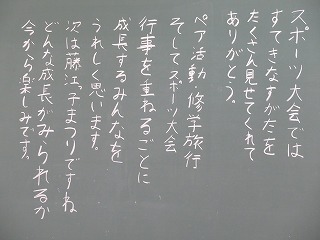 スポーツ大会では
すてきなすがたを
たくさん見せてくれて
ありがとう。
ペア活動・修学旅行
そしてスポーツ大会
行事を重ねるごとに
成長するみんなを
うれしく思います。
次は藤江っ子まつりですね
どんな成長がみられるか
今から楽しみです。